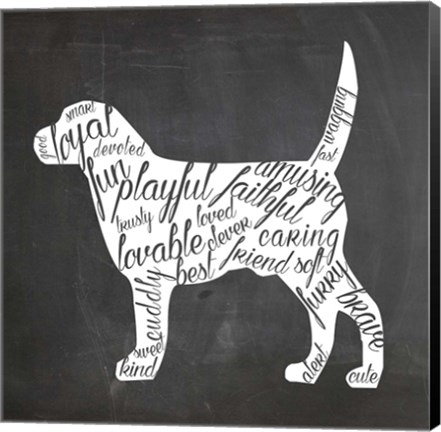 smart
good
loyal
devoted
fun
playful
trusty
loved
lovable
clever
best
cuddly
sweet
kind
wagging
fast
amusing
faithful
caring
friend
soft
furry
brave
alert
cute